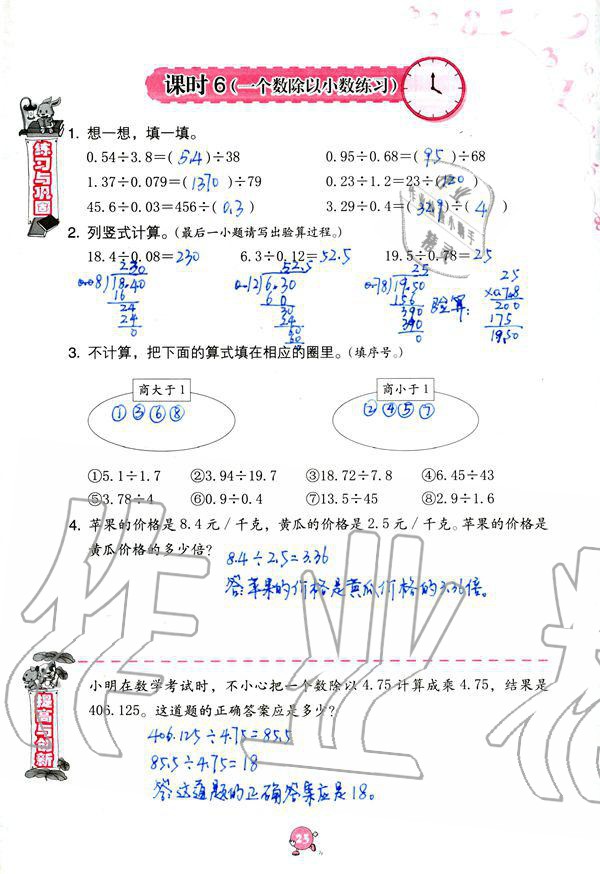 课时6（一个数除以小数练习）
练习与巩固
1. 想一想，填一填。
0.54÷3.8=( 5.4 )÷38 0.95÷0.68=( 95 )÷68
1.37÷0.079=( 1370 )÷79 0.23÷1.2=23÷( 120 )
45.6÷0.03=456÷( 0.3 ) 3.29÷0.4=( 32.9 )÷( 4 )
2. 列竖式计算。（最后一小题请写出验算过程。）
18.4÷0.08=230 6.3÷0.12=52.5 19.5÷0.78=25
230 52.5 25 25
0.08)18.40 0.12)6.30 0.78)19.50 验算: ×0.78
16 60 156 200
24 30 390 175
24 24 390 19.50
0 60 0
60
0
3. 不计算，把下面的算式填在相应的圈里。（填序号。）
商大于1 商小于1
①③⑥⑧ ②④⑤⑦
①5.1÷1.7 ②3.94÷19.7 ③18.72÷7.8 ④6.45÷43
⑤3.78÷4 ⑥0.9÷0.4 ⑦13.5÷45 ⑧2.9÷1.6
4. 苹果的价格是8.4元/千克，黄瓜的价格是2.5元/千克。苹果的价格是
黄瓜价格的多少倍？ 8.4÷2.5=3.36
答:苹果的价格是黄瓜价格的3.36倍。
提高与创新
小明在数学考试时，不小心把一个数除以4.75计算成乘4.75，结果是
406.125。这道题的正确答案应是多少？
406.125÷4.75=85.5
85.5÷4.75=18
答:这道题的正确答案应是18。
25
作业精